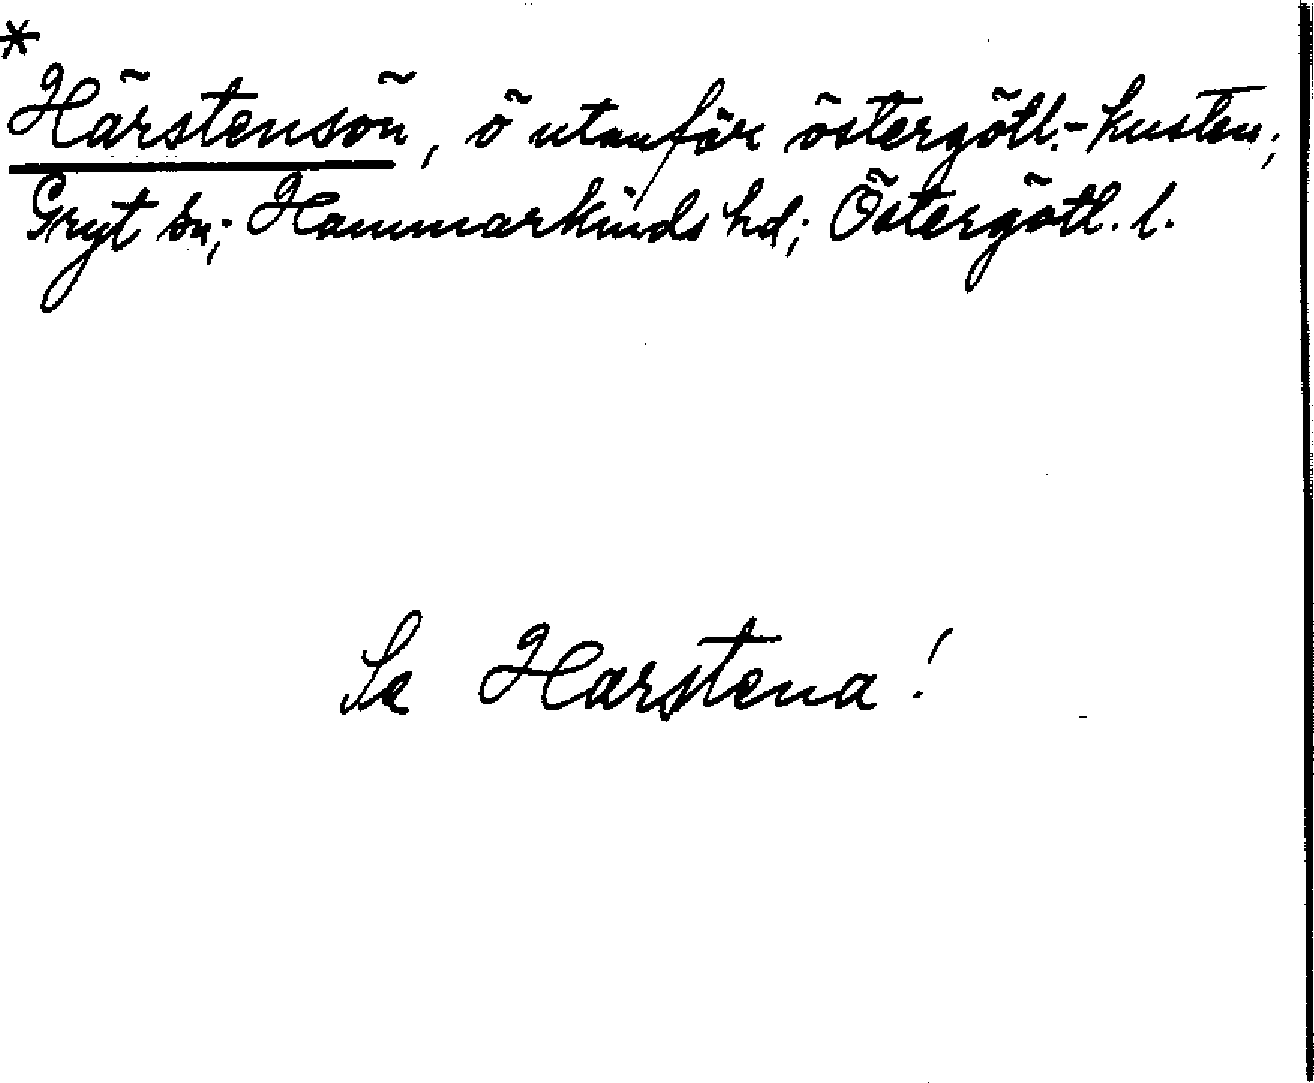 *
Härstensön, ö utanför östergötl.-kusten;
Gryt sn; Hammarkinds hd; Östergötl. l.
Se Harstena!